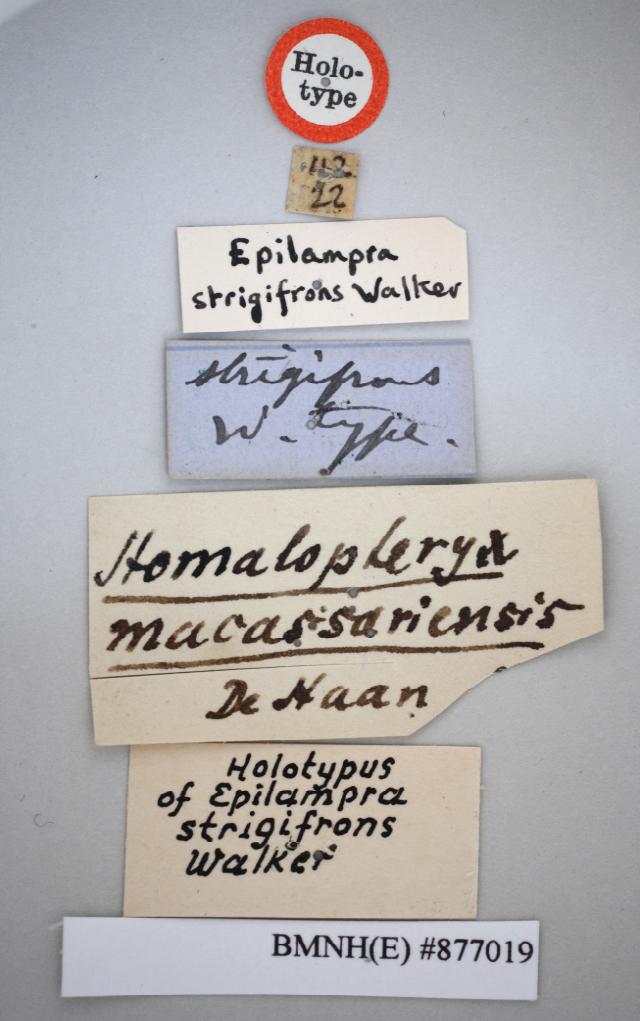 Holo-
type
42
22
Epilampra
strigifrons Walker
strigifrons
W. type.
Homalopteryx
macassariensis
De Haan
Holotypus
of Epilampra
strigifrons
Walker
BMNH(E) #877019